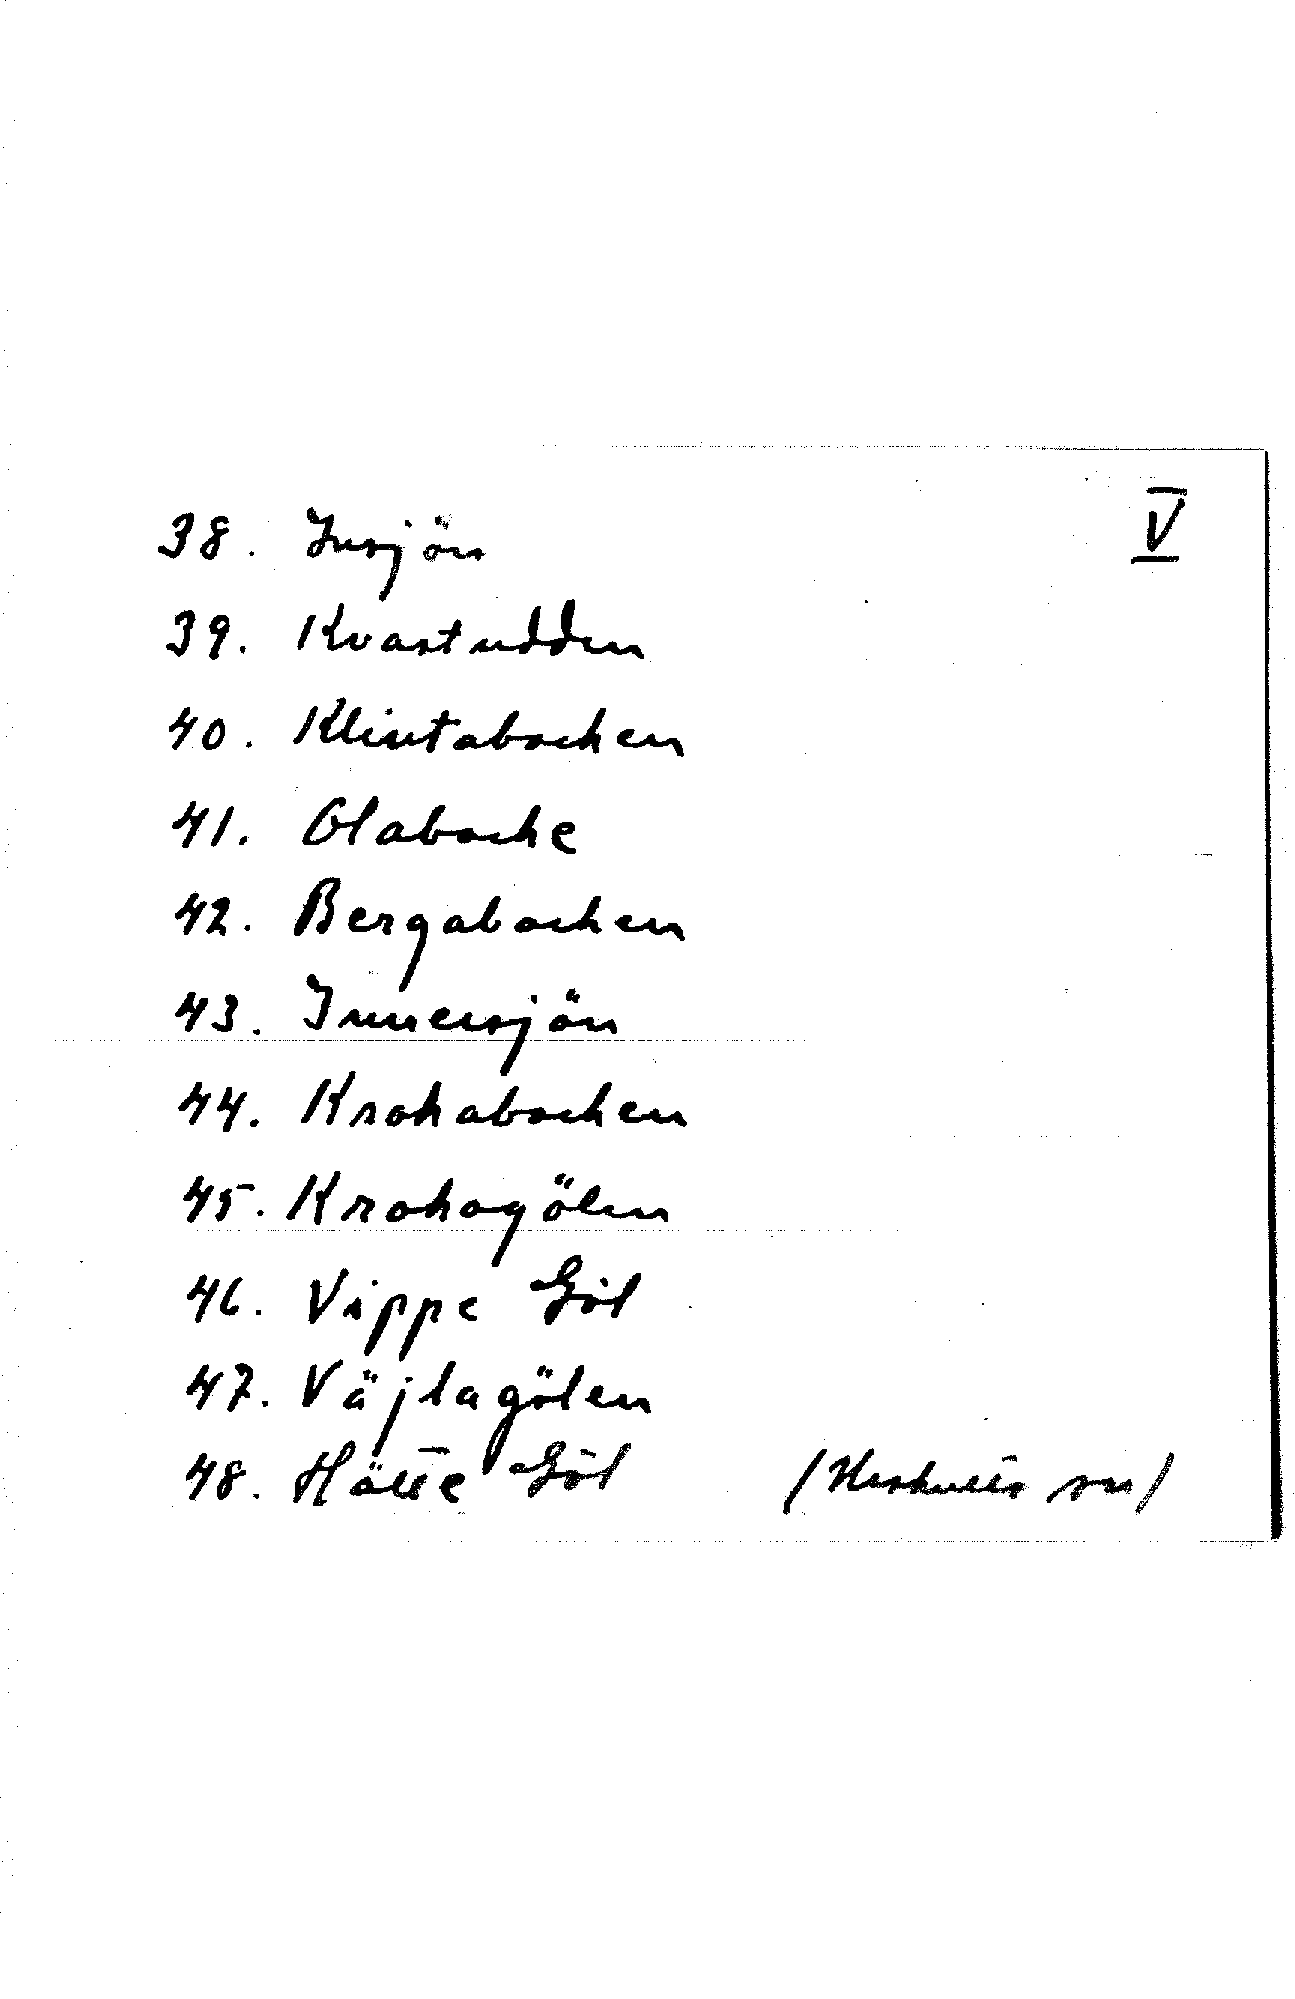 V
38. Insjön
39. Kvastudden
40. Klintabacken
41. Olabacke
42. Bergabacken
43. Innersjön
44. Krokabacken
45. Krokagölen
46. Vippe Göl
47. Väjlagölen
48. Hätte Göl